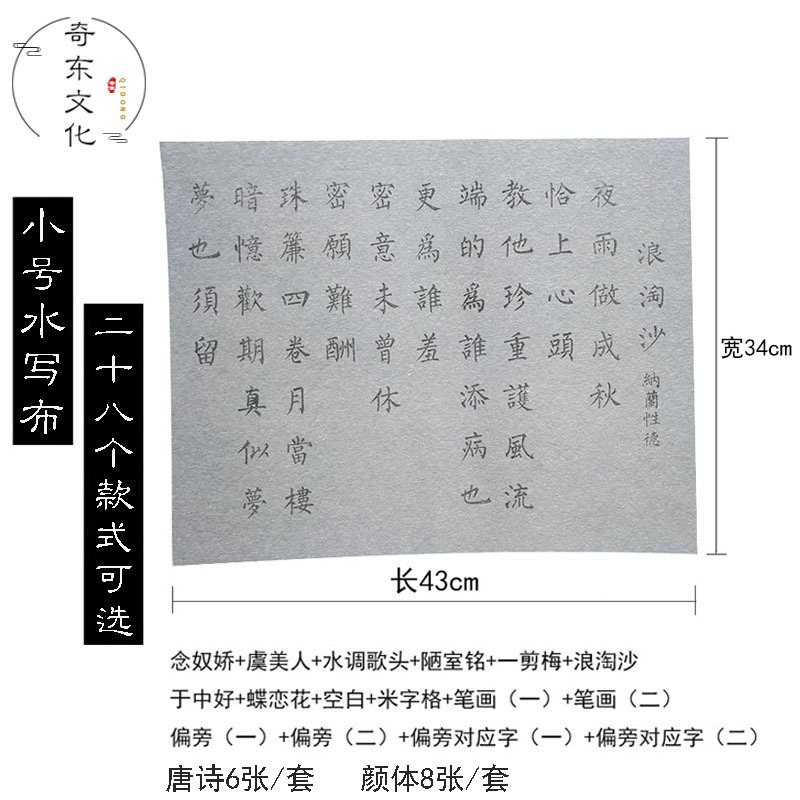 奇东文化
QIDONG
小号水写布
二十八个款式可选
浪淘沙 納蘭性德
夜雨做成秋
恰上心頭
教他珍重護風流
端的為誰添病也
更為誰羞
密意未曾休
密願難酬
珠簾四卷月當樓
暗憶歡期真似夢
夢也須留
宽34cm
长43cm
念奴娇+虞美人+水调歌头+陋室铭+一剪梅+浪淘沙
于中好+蝶恋花+空白+米字格+笔画（一）+笔画（二）
偏旁（一）+偏旁（二）+偏旁对应字（一）+偏旁对应字（二）
唐诗6张/套 颜体8张/套